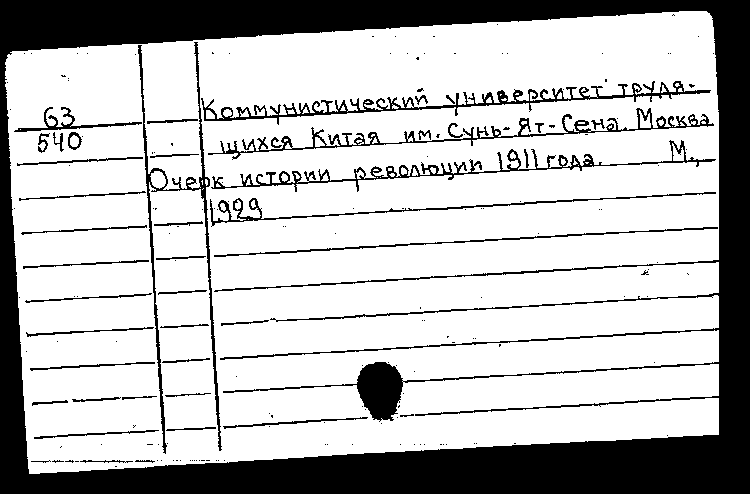 63
540
Коммунистический университет трудя-
щихся Китая им. Сунь-Ят-Сена. Москва
Очерк истории революции 1911 года. М.,
1929